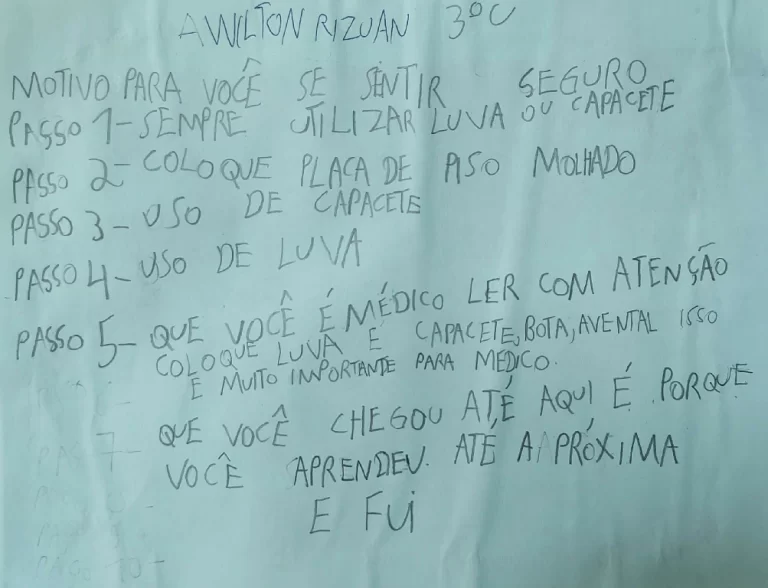 AWILTON RIZUAN 3ºC
MOTIVO PARA VOCÊ SE SENTIR SEGURO
PASSO 1- SEMPRE UTILIZAR LUVA OU CAPACETE
PASSO 2- COLOQUE PLACA DE PISO MOLHADO
PASSO 3- USO DE CAPACETE
PASSO 4- USO DE LUVA
PASSO 5- QUE VOCÊ É MÉDICO LER COM ATENÇÃO
COLOQUE LUVA E CAPACETE, BOTA, AVENTAL ISSO
E MUITO IMPORTANTE PARA MÉDICO.
QUE VOCÊ CHEGOU ATÉ AQUI É PORQUE
VOCÊ APRENDEU. ATÉ A PRÓXIMA
E FUi